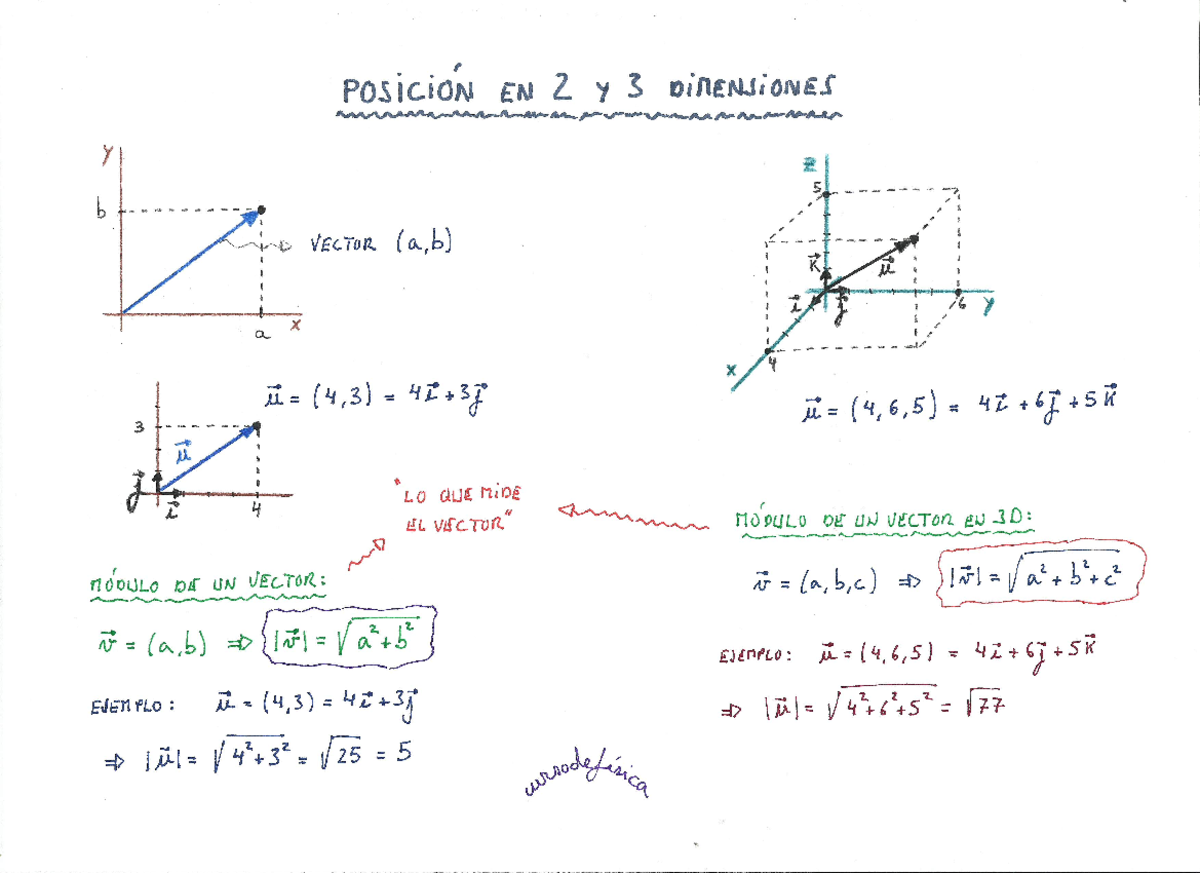 POSICIÓN EN 2 Y 3 DIMENSIONES
y
b
VECTOR (a,b)
a
x
z
5
k⃗
u⃗
i⃗
j⃗
6
y
4
x
u⃗ = (4,3) = 4i⃗ + 3j⃗
3
u⃗
j⃗
i⃗
4
u⃗ = (4,6,5) = 4i⃗ + 6j⃗ + 5k⃗
"LO QUE MIDE
EL VECTOR"
MÓDULO DE UN VECTOR:
v⃗ = (a,b) ⇒ |v⃗| = √(a²+b²)
EJEMPLO: u⃗ = (4,3) = 4i⃗ + 3j⃗
⇒ |u⃗| = √(4²+3²) = √25 = 5
MÓDULO DE UN VECTOR EN 3D:
v⃗ = (a,b,c) ⇒ |v⃗| = √(a²+b²+c²)
EJEMPLO: u⃗ = (4,6,5) = 4i⃗ + 6j⃗ + 5k⃗
⇒ |u⃗| = √(4²+6²+5²) = √77
cursodefísica